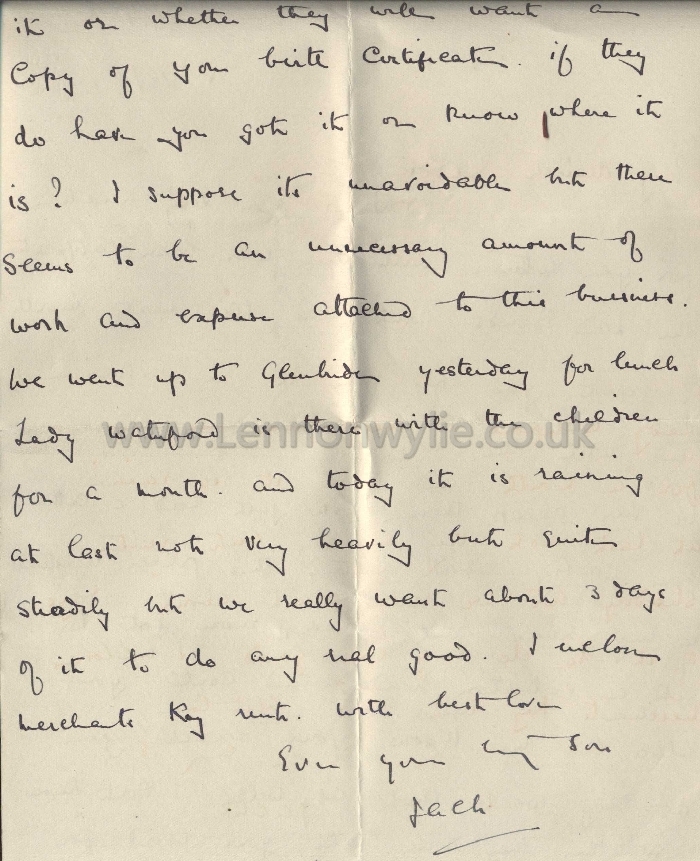 it or whether they will want a
Copy of your birth Certificate. if they
do have you got it or know where it
is? I suppose its unavoidable but there
seems to be an unnecessary amount of
work and expense attached to this buisiness.
We went up to Glenbride yesterday for lunch
Lady Waterford is there with the children
for a month. and today it is raining
at last not very heavily but quite
steadily but we really want about 3 days
of it to do any real good. I enclose
merchants Kay rent. with best love
Ever your loving Son
Jack
www.Lennonwylie.co.uk